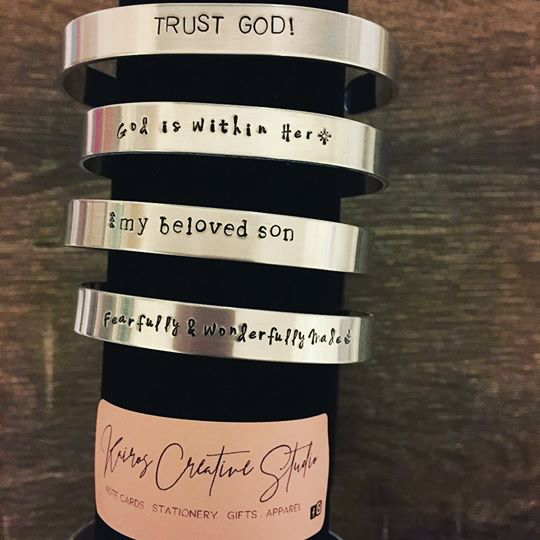 TRUST GOD!
God is Within Her
my beloved son
Fearfully & Wonderfully Made
Kairos Creative Studio
NOTE CARDS STATIONERY GIFTS . APPAREL